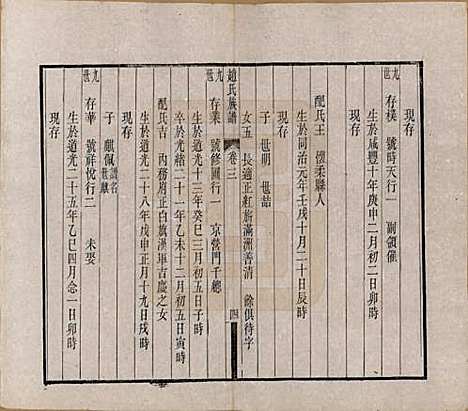 九世 存樸 號時天行一 副領催
生於咸豐十年庚申二月初二日卯時
現存
配氏王 懷柔縣人
生於同治元年壬戌十月二十日辰時
現存
子 世明 世喆
女五 長適正紅旗滿洲善清 餘俱待字
趙氏族譜 卷三 四
九世 存業 號修圃行一 京營門千總
生於道光十三年癸巳三月初五日子時
卒於光緒二十一年乙未十二月初五日寅時
配氏吉 內務府正白旗漢 吉慶之女
生於道光二十八年戊申正月十九日戌時
現存
子 麒佩 譜名世麒
九世 存華 號祥悅行二 未娶
生於道光二十五年乙巳四月念一日卯時
現存